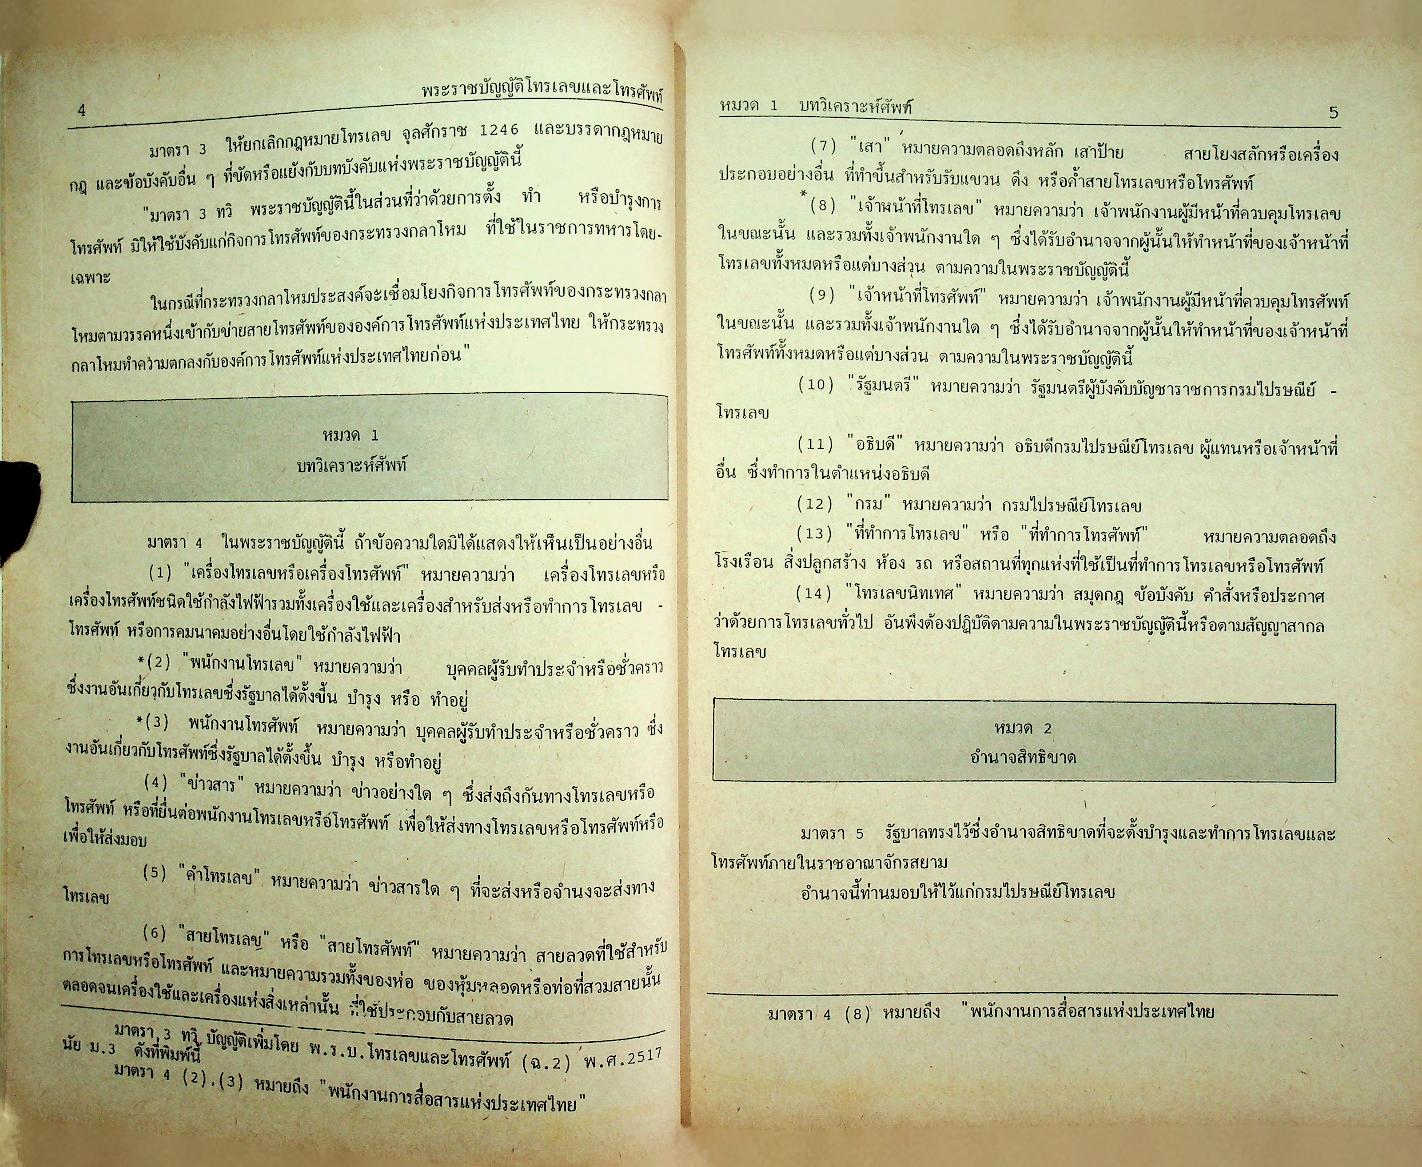 4
พระราชบัญญัติโทรเลขและโทรศัพท์
มาตรา 3 ให้ยกเลิกกฎหมายโทรเลข จุลศักราช 1246 และบรรดากฎหมาย
กฎ และข้อบังคับอื่น ๆ ที่ขัดหรือแย้งกับบทบังคับแห่งพระราชบัญญัตินี้
"มาตรา 3 ทวิ พระราชบัญญัตินี้ในส่วนที่ว่าด้วยการตั้ง ทำ หรือบำรุงการ
โทรศัพท์ มิให้ใช้บังคับแก่กิจการโทรศัพท์ของกระทรวงกลาโหม ที่ใช้ในราชการทหารโดย-
เฉพาะ
ในกรณีที่กระทรวงกลาโหมประสงค์จะเชื่อมโยงกิจการโทรศัพท์ของกระทรวงกลา
โหมตามวรรคหนึ่งเข้ากับข่ายสายโทรศัพท์ขององค์การโทรศัพท์แห่งประเทศไทย ให้กระทรวง
กลาโหมทำความตกลงกับองค์การโทรศัพท์แห่งประเทศไทยก่อน"
หมวด 1
บทวิเคราะห์ศัพท์
มาตรา 4 ในพระราชบัญญัตินี้ ถ้าข้อความใดมิได้แสดงให้เห็นเป็นอย่างอื่น
(1) "เครื่องโทรเลขหรือเครื่องโทรศัพท์" หมายความว่า เครื่องโทรเลขหรือ
เครื่องโทรศัพท์ชนิดใช้กำลังไฟฟ้ารวมทั้งเครื่องใช้และเครื่องสำหรับส่งหรือทำการโทรเลข -
โทรศัพท์ หรือการคมนาคมอย่างอื่นโดยใช้กำลังไฟฟ้า
*(2) "พนักงานโทรเลข" หมายความว่า บุคคลผู้รับทำประจำหรือชั่วคราว
ซึ่งงานอันเกี่ยวกับโทรเลขซึ่งรัฐบาลได้ตั้งขึ้น บำรุง หรือ ทำอยู่
*(3) พนักงานโทรศัพท์ หมายความว่า บุคคลผู้รับทำประจำหรือชั่วคราว ซึ่ง
งานอันเกี่ยวกับโทรศัพท์ซึ่งรัฐบาลได้ตั้งขึ้น บำรุง หรือทำอยู่
(4) "ข่าวสาร" หมายความว่า ข่าวอย่างใด ๆ ซึ่งส่งถึงกันทางโทรเลขหรือ
โทรศัพท์ หรือที่ยื่นต่อพนักงานโทรเลขหรือโทรศัพท์ เพื่อให้ส่งทางโทรเลขหรือโทรศัพท์หรือ
เพื่อให้ส่งมอบ
(5) "คำโทรเลข" หมายความว่า ข่าวสารใด ๆ ที่จะส่งหรือจำนงจะส่งทาง
โทรเลข
(6) "สายโทรเลข" หรือ "สายโทรศัพท์" หมายความว่า สายลวดที่ใช้สำหรับ
การโทรเลขหรือโทรศัพท์ และหมายความรวมทั้งของห่อ ของหุ้มหลอดหรือท่อที่สวมสายนั้น
ตลอดจนเครื่องใช้และเครื่องแห่งสิ่งเหล่านั้น ที่ใช้ประกอบกับสายลวด
มาตรา 3 ทวิ บัญญัติเพิ่มโดย พ.ร.บ.โทรเลขและโทรศัพท์ (ฉ.2) พ.ศ.2517
นัย ม.3 ดังที่พิมพ์นี้
มาตรา 4 (2),(3) หมายถึง "พนักงานการสื่อสารแห่งประเทศไทย"
หมวด 1 บทวิเคราะห์ศัพท์
5
(7) "เสา" หมายความตลอดถึงหลัก เสาป้าย สายโยงสลักหรือเครื่อง
ประกอบอย่างอื่น ที่ทำขึ้นสำหรับรับแขวน ดึง หรือค้ำสายโทรเลขหรือโทรศัพท์
*(8) "เจ้าหน้าที่โทรเลข" หมายความว่า เจ้าพนักงานผู้มีหน้าที่ควบคุมโทรเลข
ในขณะนั้น และรวมทั้งเจ้าพนักงานใด ๆ ซึ่งได้รับอำนาจจากผู้นั้นให้ทำหน้าที่ของเจ้าหน้าที่
โทรเลขทั้งหมดหรือแต่บางส่วน ตามความในพระราชบัญญัตินี้
(9) "เจ้าหน้าที่โทรศัพท์" หมายความว่า เจ้าพนักงานผู้มีหน้าที่ควบคุมโทรศัพท์
ในขณะนั้น และรวมทั้งเจ้าพนักงานใด ๆ ซึ่งได้รับอำนาจจากผู้นั้นให้ทำหน้าที่ของเจ้าหน้าที่
โทรศัพท์ทั้งหมดหรือแต่บางส่วน ตามความในพระราชบัญญัตินี้
(10) "รัฐมนตรี" หมายความว่า รัฐมนตรีผู้บังคับบัญชาราชการกรมไปรษณีย์ -
โทรเลข
(11) "อธิบดี" หมายความว่า อธิบดีกรมไปรษณีย์โทรเลข ผู้แทนหรือเจ้าหน้าที่
อื่น ซึ่งทำการในตำแหน่งอธิบดี
(12) "กรม" หมายความว่า กรมไปรษณีย์โทรเลข
(13) "ที่ทำการโทรเลข" หรือ "ที่ทำการโทรศัพท์" หมายความตลอดถึง
โรงเรือน สิ่งปลูกสร้าง ห้อง รถ หรือสถานที่ทุกแห่งที่ใช้เป็นที่ทำการโทรเลขหรือโทรศัพท์
(14) "โทรเลขนิทเทศ" หมายความว่า สมุดกฎ ข้อบังคับ คำสั่งหรือประกาศ
ว่าด้วยการโทรเลขทั่วไป อันพึงต้องปฏิบัติตามความในพระราชบัญญัตินี้หรือตามสัญญาสากล
โทรเลข
หมวด 2
อำนาจสิทธิขาด
มาตรา 5 รัฐบาลทรงไว้ซึ่งอำนาจสิทธิขาดที่จะตั้งบำรุงและทำการโทรเลขและ
โทรศัพท์ภายในราชอาณาจักรสยาม
อำนาจนี้ท่านมอบให้ไว้แก่กรมไปรษณีย์โทรเลข
มาตรา 4 (8) หมายถึง "พนักงานการสื่อสารแห่งประเทศไทย